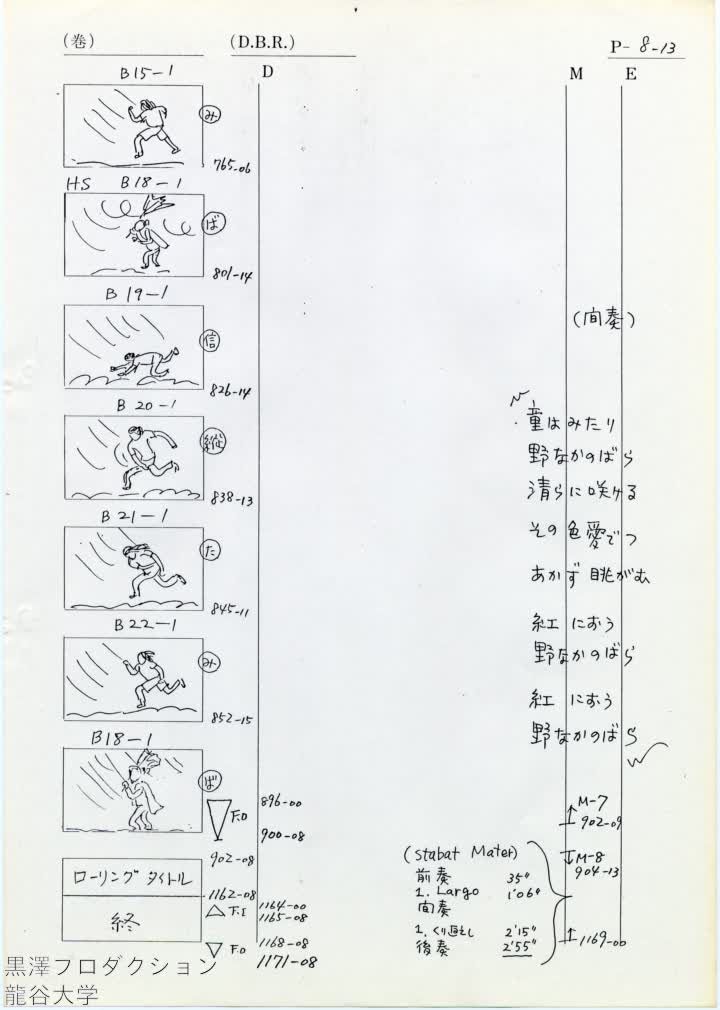 (巻)
(D.B.R.)
P- 8-13
D
M E
B15-1
み
765-06
HS B18-1
ば
801-14
B19-1
信
826-14
B20-1
縦
838-13
B21-1
た
845-11
B22-1
み
852-15
B18-1
ば
F.O
896-00
900-08
902-08
ローリングタイトル
1162-08
終
F.I
1164-00
1165-08
F.O
1168-08
1171-08
(間奏)
童はみたり
野なかのばら
清らに咲ける
その色愛でつ
あかず眺がむ
紅におう
野なかのばら
紅におう
野なかのばら
M-7
902-09
M-8
904-13
(Stabat Mater)
前奏 35"
1. Largo 1'06"
間奏
1. くり返えし 2'15"
後奏 2'55"
1169-00
黒澤プロダクション
龍谷大学